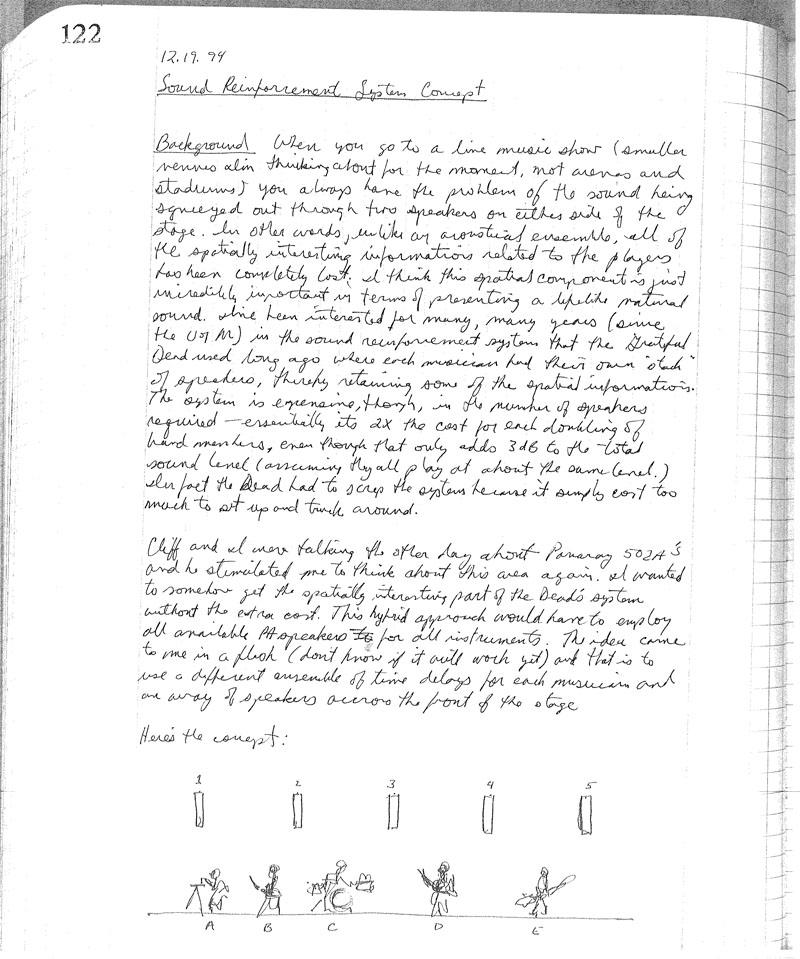 122
12.19.94
Sound Reinforcement System Concept
Background When you go to a live music show (smaller
venues I'm thinking about for the moment, not arenas and
stadiums) you always have the problem of the sound being
squeezed out through two speakers on either side of the
stage. In other words, unlike an acoustical ensemble, all of
the spatially interesting informations related to the players
has been completely lost. I think this spatial component is just
incredibly important in terms of presenting a lifelike natural
sound. I've been interested for many, many years (since
the U of M) in the sound reinforcement system that the Grateful
Dead used long ago where each musician had their own "stack"
of speakers, thereby retaining some of the spatial informations.
The system is expensive, though, in the number of speakers
required – essentially its 2X the cost for each doubling of
band members, even though that only adds 3dB to the total
sound level (assuming they all play at about the same level.)
In fact the Dead had to scrap the system because it simply cost too
much to set up and truck around.
Cliff and I were talking the other day about Panaray 502A's
and he stimulated me to think about this area again. I wanted
to somehow get the spatially interesting part of the Dead's system
without the extra cost. This hybrid approach would have to employ
all available PA speakers for all instruments. The idea came
to me in a flash (don't know if it will work yet) and that is to
use a different ensemble of time delays for each musician and
an array of speakers accross the front of the stage
Here's the concept:
1 2 3 4 5
A B C D E